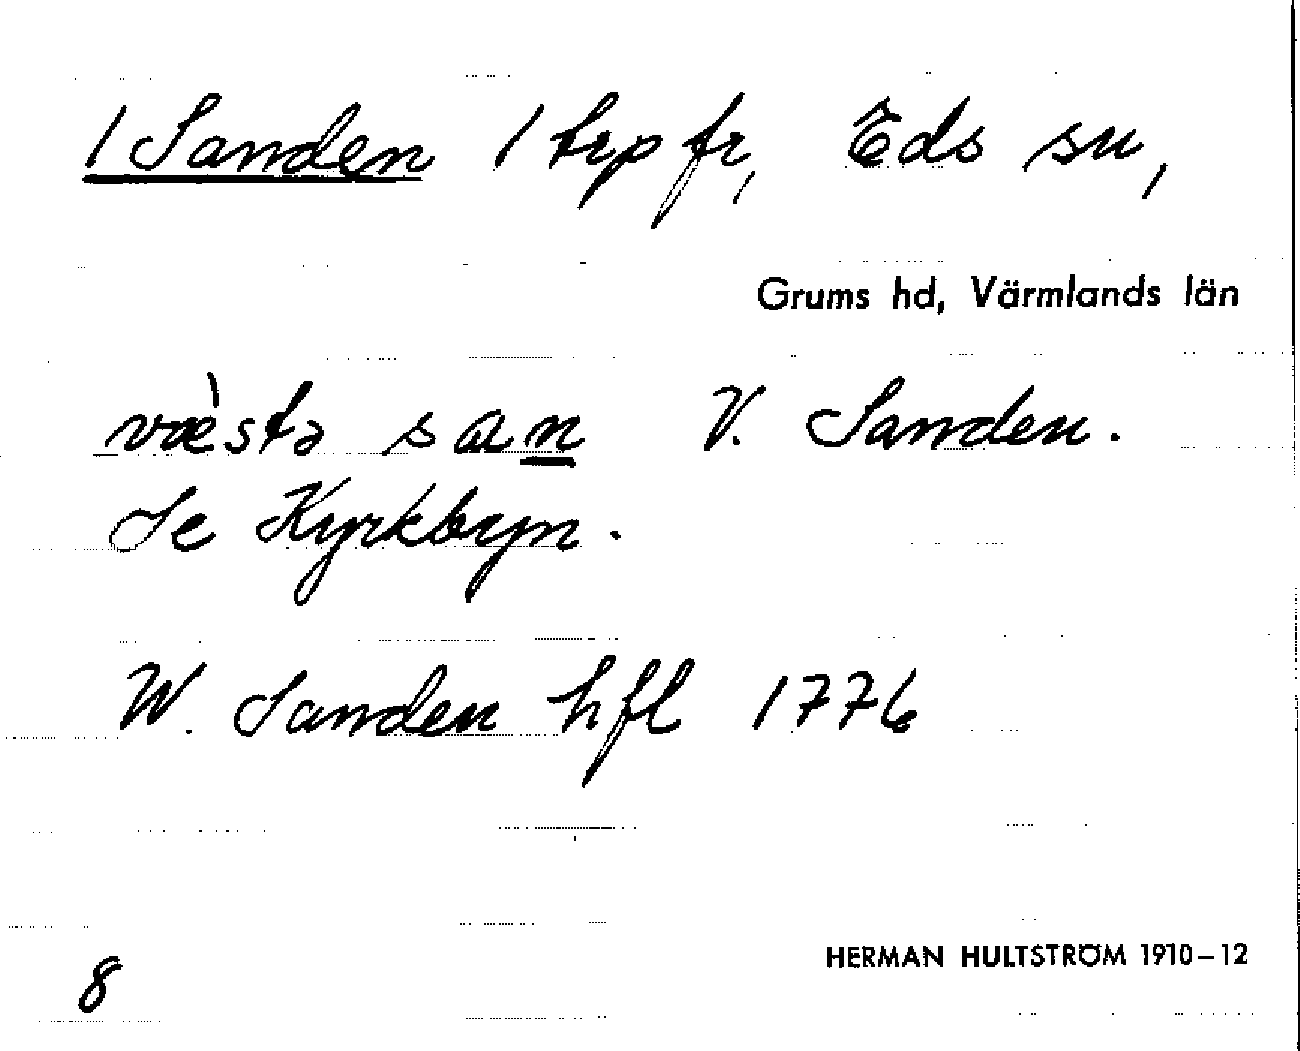 /Sanden / trp fr, Eds sn,
Grums hd, Värmlands län
væ̀stə san V. Sanden.
Se Kyrkbyn.
W. Sanden hfl 1776
8
HERMAN HULTSTRÖM 1910–12